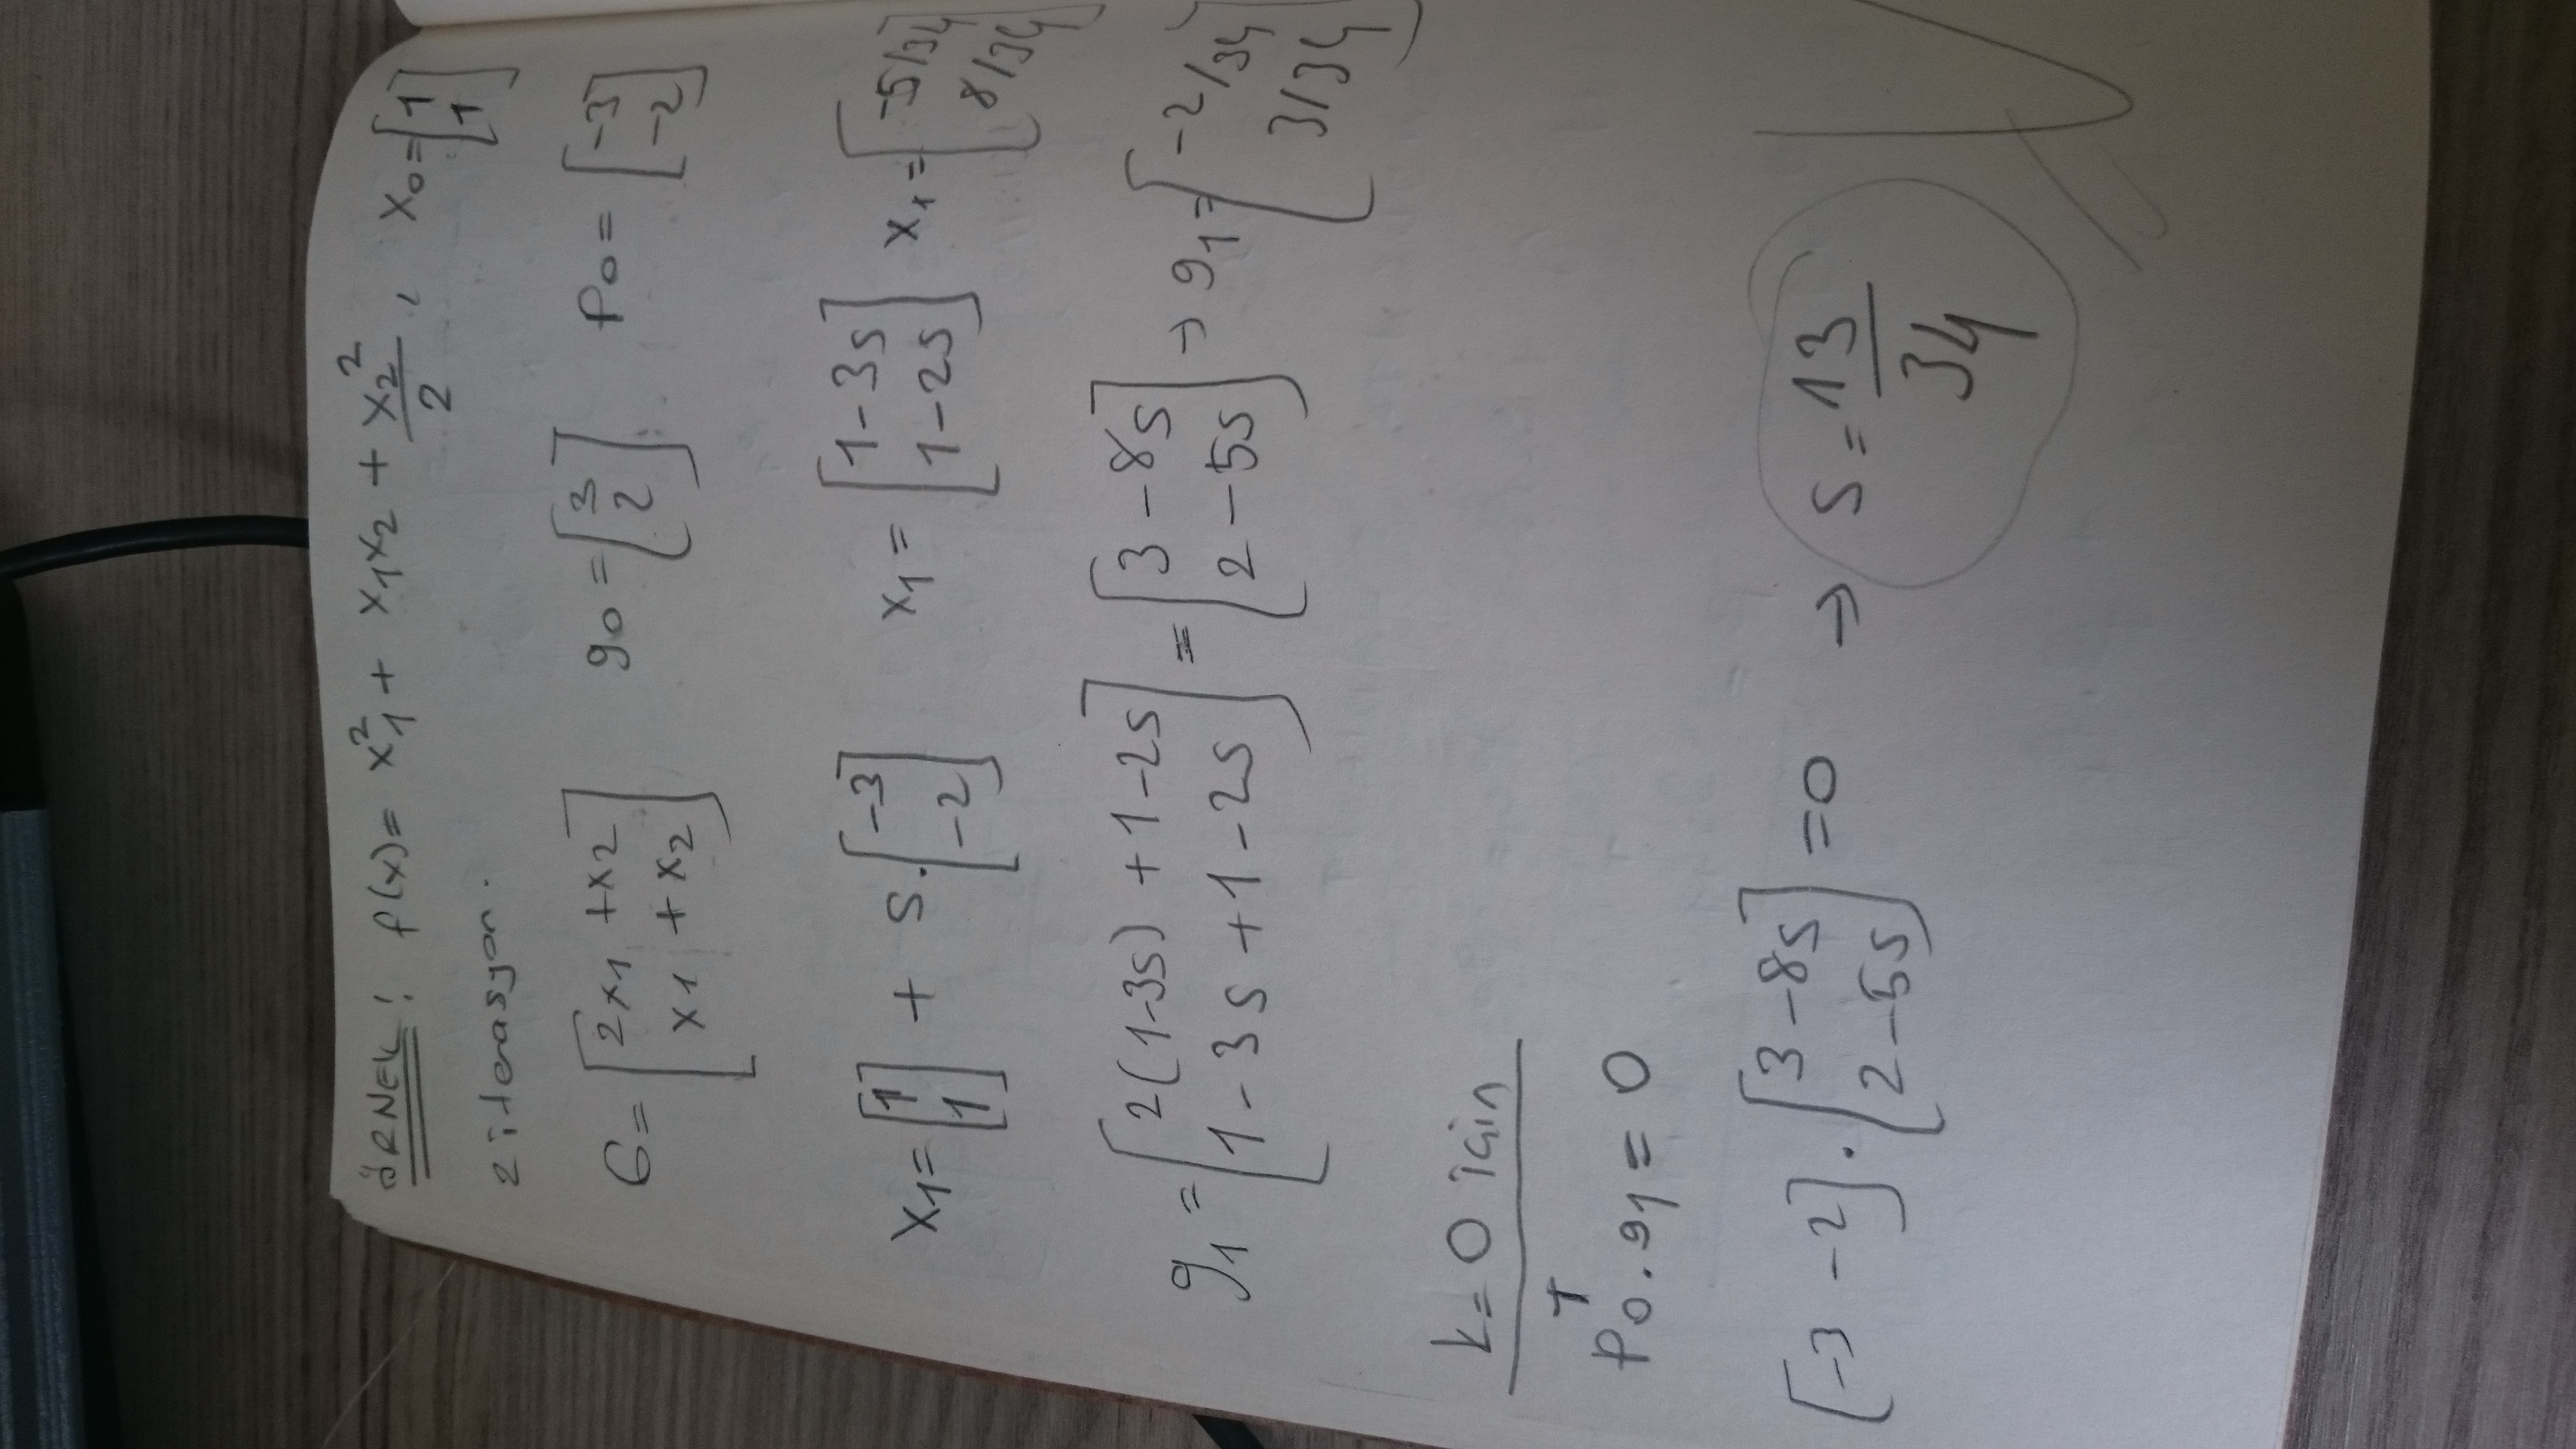 ÖRNEK! f(x)= x₁² + x₁x₂ + x₂²/2 , x₀=[1 1]
2 iterasyon.
G= [2x₁ +x₂ x₁ +x₂] g₀ = [3 2] P₀= [-3 -2]
x₁= [1 1] + s.[-3 -2] x₁ = [1-3s 1-2s] x₁ = [-5/34 8/34]
g₁ = [2(1-3s) +1-2s 1-3s +1-2s] = [3-8s 2-5s] → g₁= [-2/34 3/34]
k=0 için
P₀ᵀ.g₁= 0
[-3 -2].[3-8s 2-5s] =0 → s = 13/34